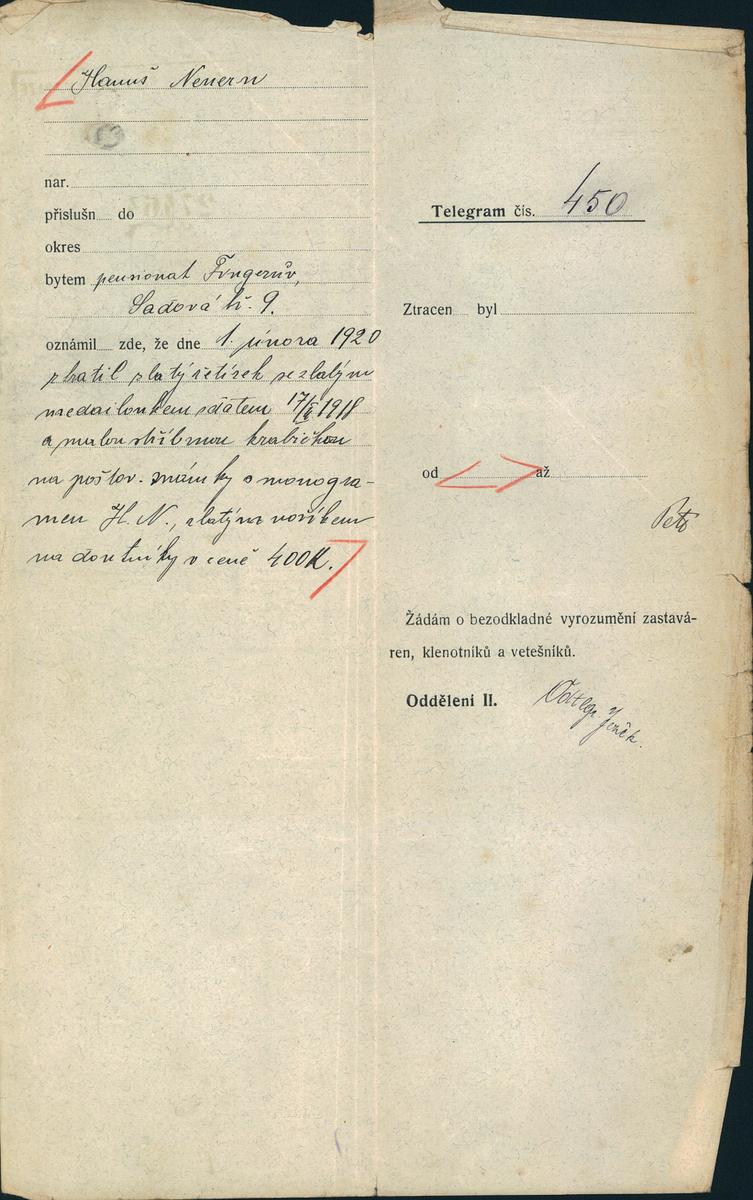 Hanuš Neuern
nar.
přislušn do
okres
bytem pensionat Fingerův,
Sadová tř. 9.
oznámil zde, že dne 1. února 1920
ztratil zlatý řetízek se zlatým
medailonkem s datem 17/II 1918
a malou stříbrnou krabičkou
na poštov. známky s monogra-
mem H. N., zlatým nožíkem
na doutníky v ceně 400 K.
Telegram čís. 450
Ztracen byl
od až
Petr
Žádám o bezodkladné vyrozumění zastavá-
ren, klenotníků a vetešníků.
Oddělení II.